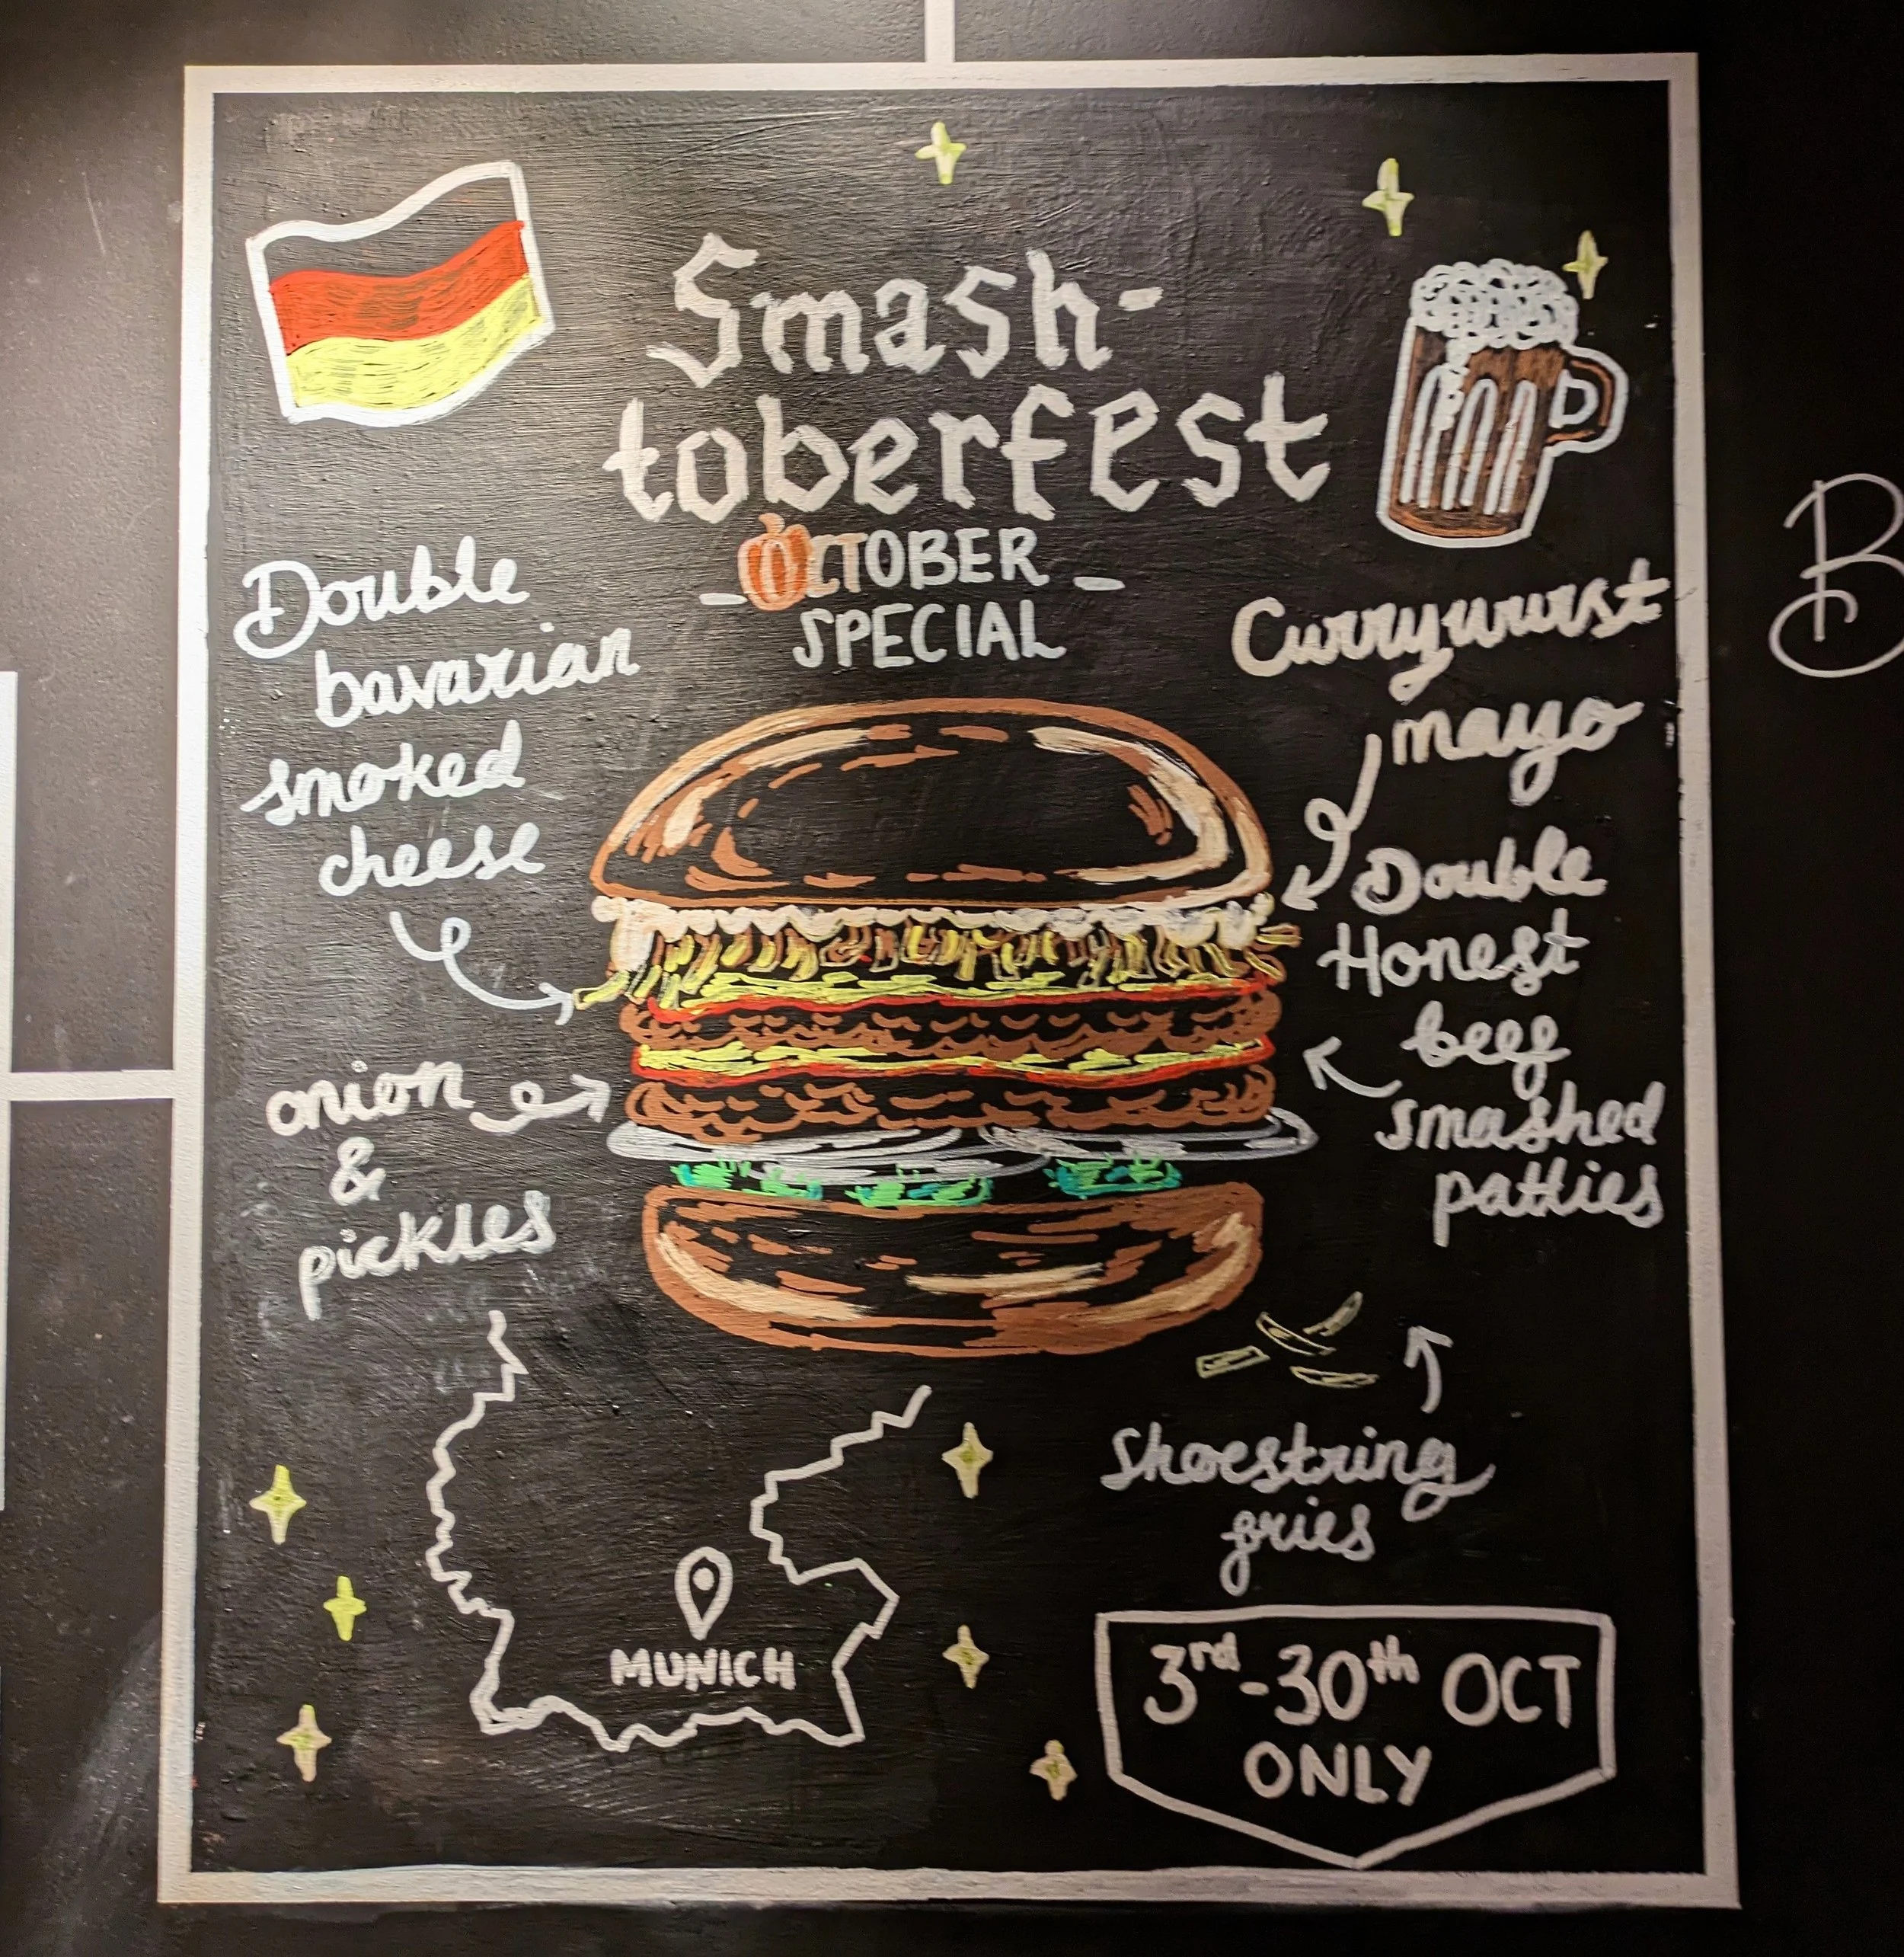 Smash-
toberfest
OCTOBER
SPECIAL
Double
bavarian
smoked
cheese
onion
&
pickles
Currywurst
mayo
Double
Honest
beef
smashed
patties
Shoestring
fries
MUNICH
3rd-30th OCT
ONLY
B